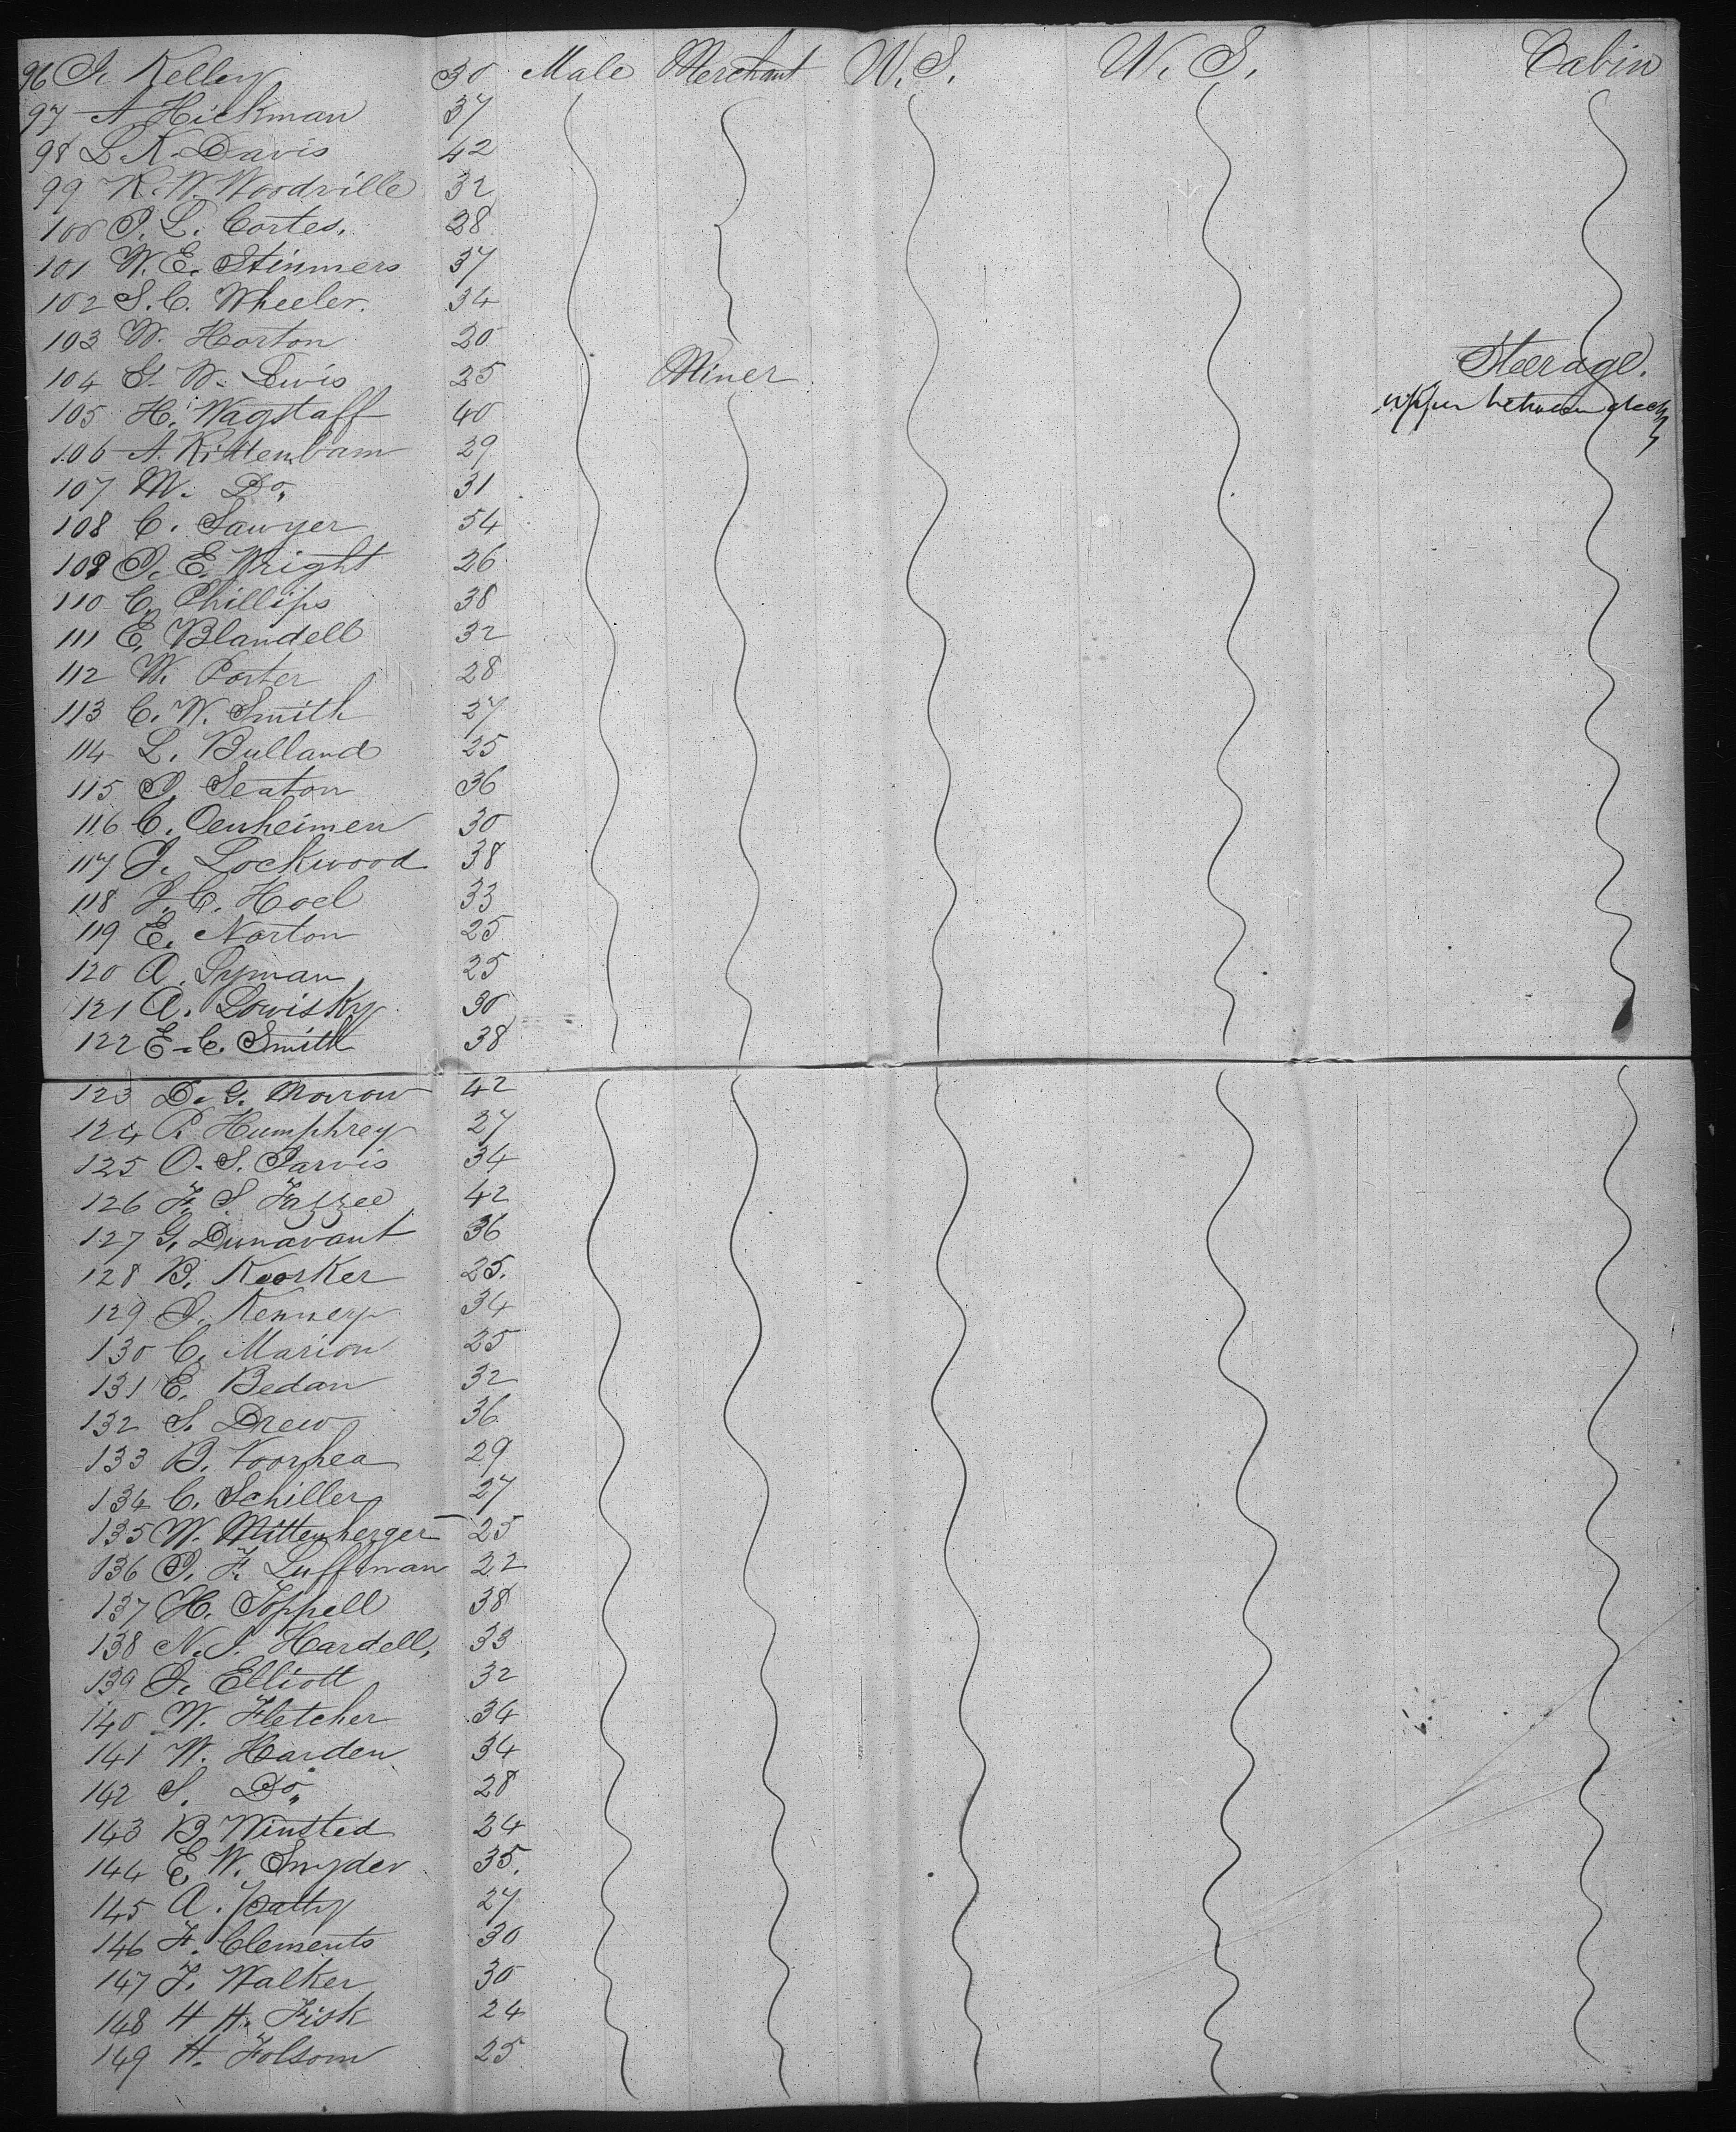 96 J. Kelley 30 Male Merchant U.S. U.S. Cabin
97 A Hickman 37
98 L. K. Davis 42
99 R. W. Woodville 32
100 P. L. Cortes. 38
101 W. E. Stinmers 37
102 S. C. Wheeler. 34
103 W. Horton 20
104 G. W. Lewis 25 Miner Steerage.
105 H. Wagstaff 40 upper between decks
106 A. Rittenbam 29
107 M. Do. 31
108 C. Sawyer 54
109 J. E. Wright 26
110 C. Phillips 38
111 E. Blandell 32
112 W. Porter 28
113 C. W. Smith 27
114 L. Bulland 25
115 J. Seaton 36
116 C. Oenheimen 30
117 J. Lockwood 38
118 J. C. Hoel 33
119 E. Norton 25
120 A. Lyman 25
121 A. Lowisky 30
122 E. C. Smith 38
123 D. G. Morrow 42
124 R. Humphrey 27
125 O. S. Jarvis 34
126 F. S. Fazzee 42
127 G. Dunavant 36
128 B. Koorker 25.
129 J. Kennery 34
130 C. Marion 25
131 E. Bedan 32
132 S. Drew 36
133 B. Voorhea 29
134 C. Schiller 27
135 W. Mittenherger 25
136 J. F. Luffman 22
137 H. Toppell 38
138 N. J. Hardell, 33
139 J. Elliott 32
140 W. Fletcher 34
141 W. Harden 34
142 S. Do. 28
143 B. Winsted 24
144 E. W. Snyder 35.
145 A. 27
146 F. Clements 30
147 J. Walker 30
148 H H. Fisk 24
149 H. Folsom 25